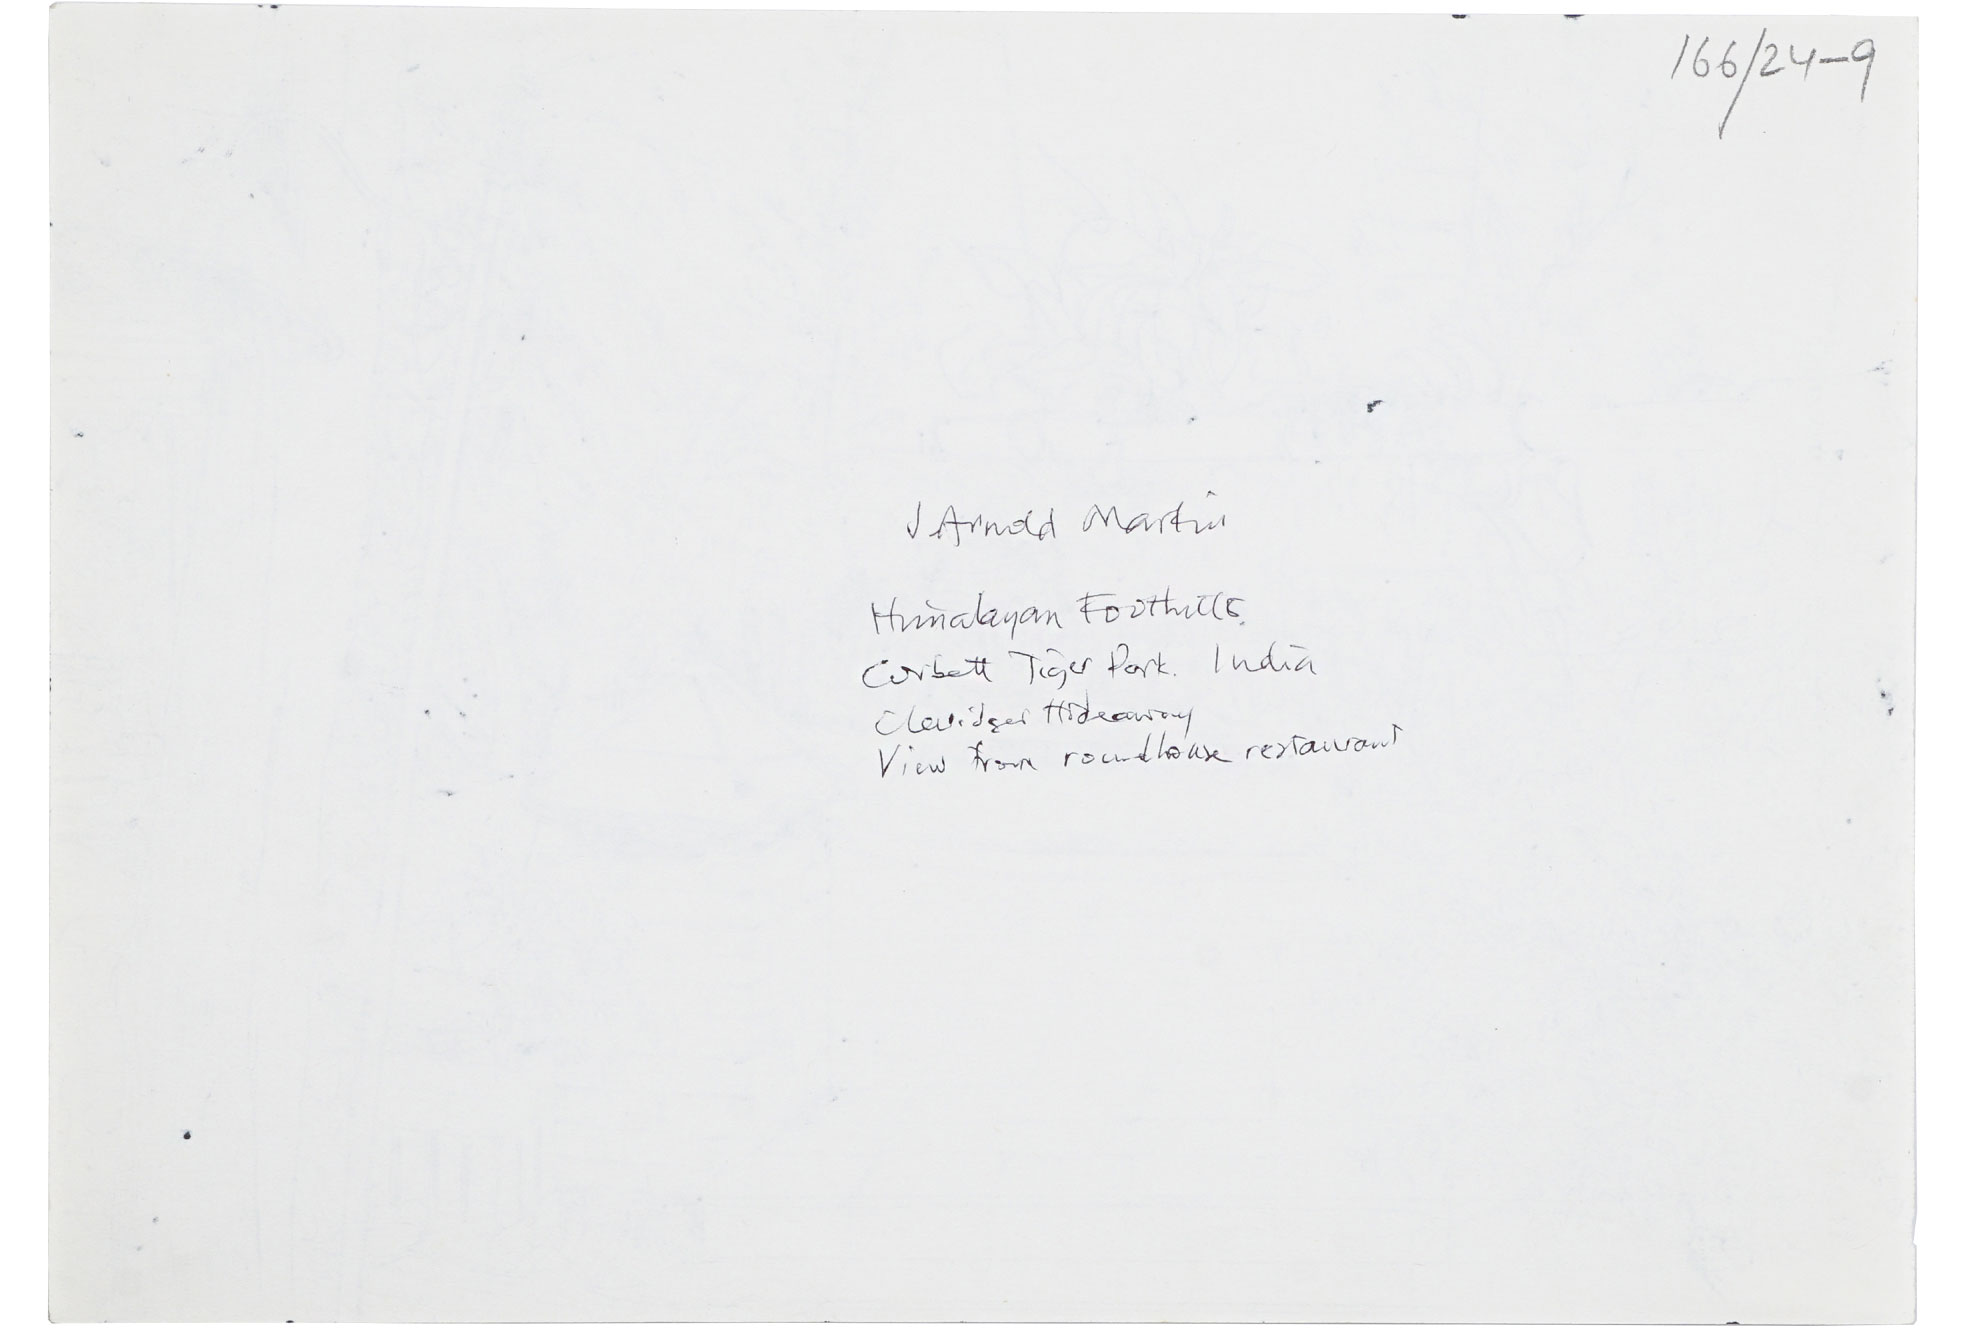 166/24-9
J Arnold Martin
Himalayan Foothills.
Corbett Tiger Park. India
Claridges Hideaway
View from roundhouse restaurant